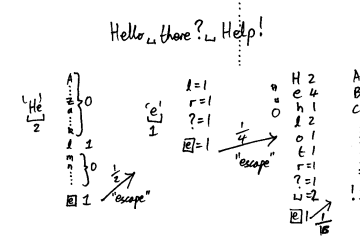 Hello␣there?␣Help!
'He'
2
A
⋮
z
a
⋮
k
0
l 1
m
n
⋮
0
e 1
1/2
"escape"
'e'
1
l=1
r=1
?=1
e=1
1/4
"escape"
A
=
0
H 2
e 4
h 1
l 2
o 1
t 1
r=1
?=1
␣=2
e 1
A
B
C
!